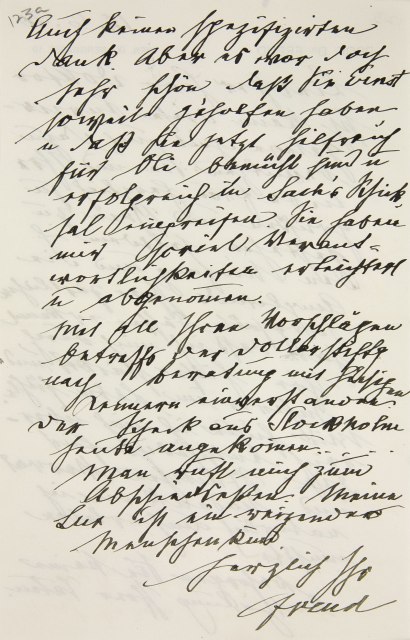 123a
Auch keinen spezifizirten
Dank. Aber es war doch
sehr schön daß Sie Ernst
soweit geholfen haben
u daß Sie jetzt hilfreich
für Oli bemüht sind u
erfolgreich in Sachs Schick
sal eingreifen Sie haben
mir soviel Verant-
wortlichkeiten erleichtert
u abgenommen.
Mit all Ihren Vorschlägen
betreffs der Dollarstifte
nach Beratung mit hiesigen
Kennern einverstanden
Der Scheck aus Stockholm
heute angekommen....
Man ruft mich zum
Abschiedessen. Meine
Lux ist ein reizendes
Menschenkind
Herzlich Ihr
Freud